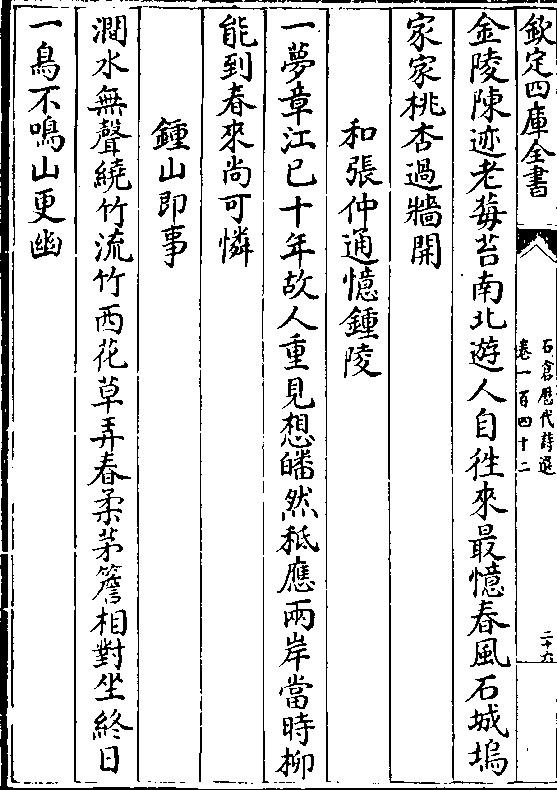 欽定四庫全書
石倉歷代詩選
卷一百四十二
二十六
金陵陳迹老莓苔南北遊人自徃來最憶春風石城塢
家家桃杏過牆開
和張仲通憶鍾陵
一夢章江已十年故人重見想皤然秪應兩岸當時柳
能到春來尚可憐
鍾山即事
澗水無聲繞竹流竹西花草弄春柔茅簷相對坐終日
一鳥不鳴山更幽